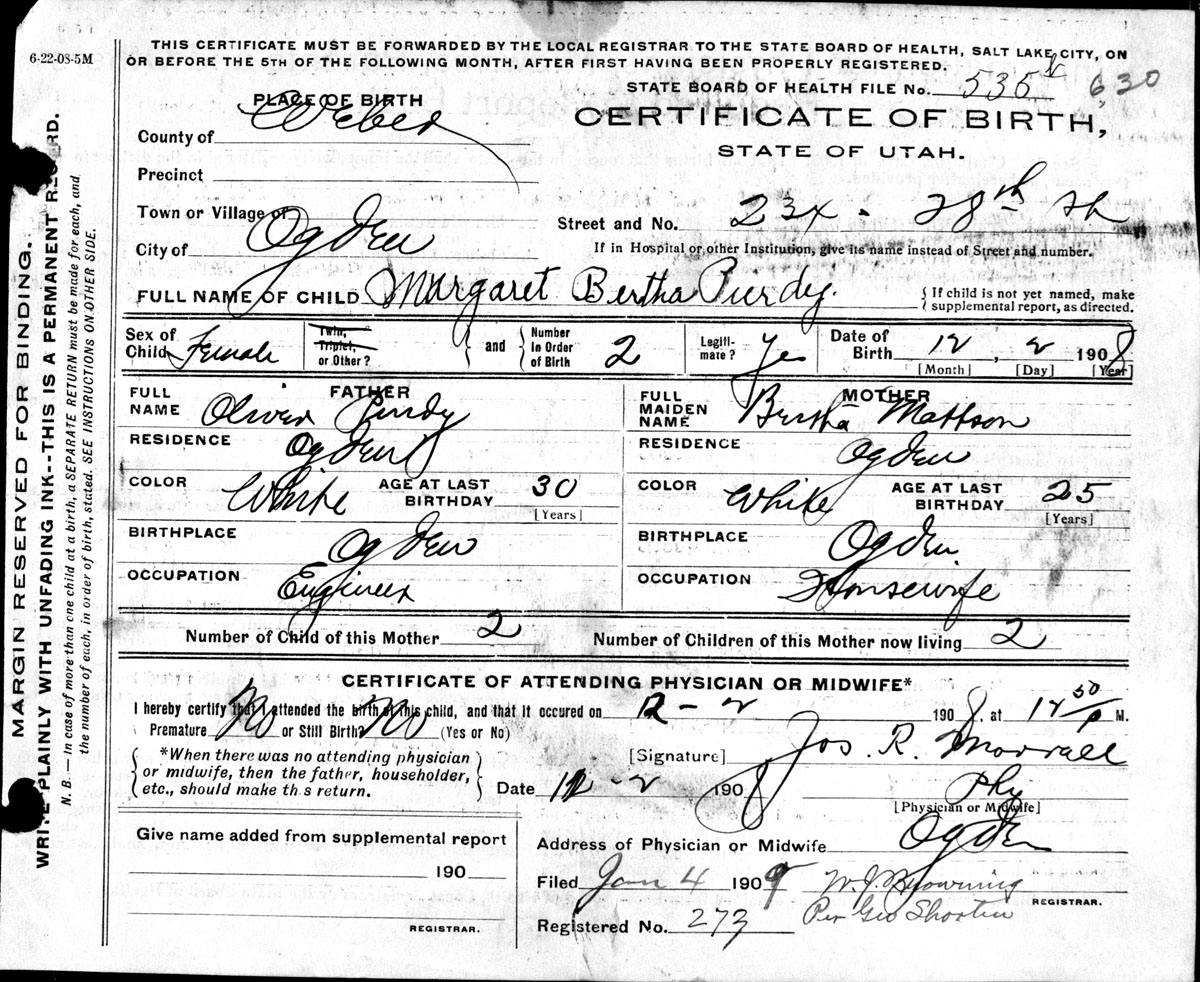 6-22-08-5M
THIS CERTIFICATE MUST BE FORWARDED BY THE LOCAL REGISTRAR TO THE STATE BOARD OF HEALTH, SALT LAKE CITY, ON
OR BEFORE THE 5TH OF THE FOLLOWING MONTH, AFTER FIRST HAVING BEEN PROPERLY REGISTERED.
STATE BOARD OF HEALTH FILE No. 535 630
PLACE OF BIRTH
CERTIFICATE OF BIRTH,
County of Weber
STATE OF UTAH.
Precinct
Town or Village of
Street and No. 234 - 28th St
City of Ogden
If in Hospital or other Institution, give its name instead of Street and number.
FULL NAME OF CHILD Margaret Bertha Purdy.
{ If child is not yet named, make
supplemental report, as directed.
Sex of Child Female
Twin, Triplet, or Other?
and
Number in Order of Birth 2
Legitimate? Yes
Date of Birth 12, 2 1908
[Month] [Day] [Year]
FATHER
FULL NAME Oliver Purdy
RESIDENCE Ogden
COLOR White AGE AT LAST BIRTHDAY 30 [Years]
BIRTHPLACE Ogden
OCCUPATION Engineer
MOTHER
FULL MAIDEN NAME Bertha Mattson
RESIDENCE Ogden
COLOR White AGE AT LAST BIRTHDAY 25 [Years]
BIRTHPLACE Ogden
OCCUPATION Housewife
Number of Child of this Mother 2 Number of Children of this Mother now living 2
CERTIFICATE OF ATTENDING PHYSICIAN OR MIDWIFE*
I hereby certify that I attended the birth of this child, and that it occured on 12-2 1908. at 12 50/P M.
Premature No or Still Birth? No (Yes or No)
*When there was no attending physician
or midwife, then the father, householder,
etc., should make this return.
[Signature] Jos R. Morrell
Date 12-2 1908 Phy
[Physician or Midwife]
Address of Physician or Midwife Ogden
Filed Jan 4 1909 W. J. Browning
REGISTRAR.
Registered No. 273 Per Geo Shorten
Give name added from supplemental report
190
REGISTRAR.
MARGIN RESERVED FOR BINDING.
WRITE PLAINLY WITH UNFADING INK--THIS IS A PERMANENT RECORD.
N. B.—In case of more than one child at a birth, a SEPARATE RETURN must be made for each, and
the number of each, in order of birth, stated. SEE INSTRUCTIONS ON OTHER SIDE.